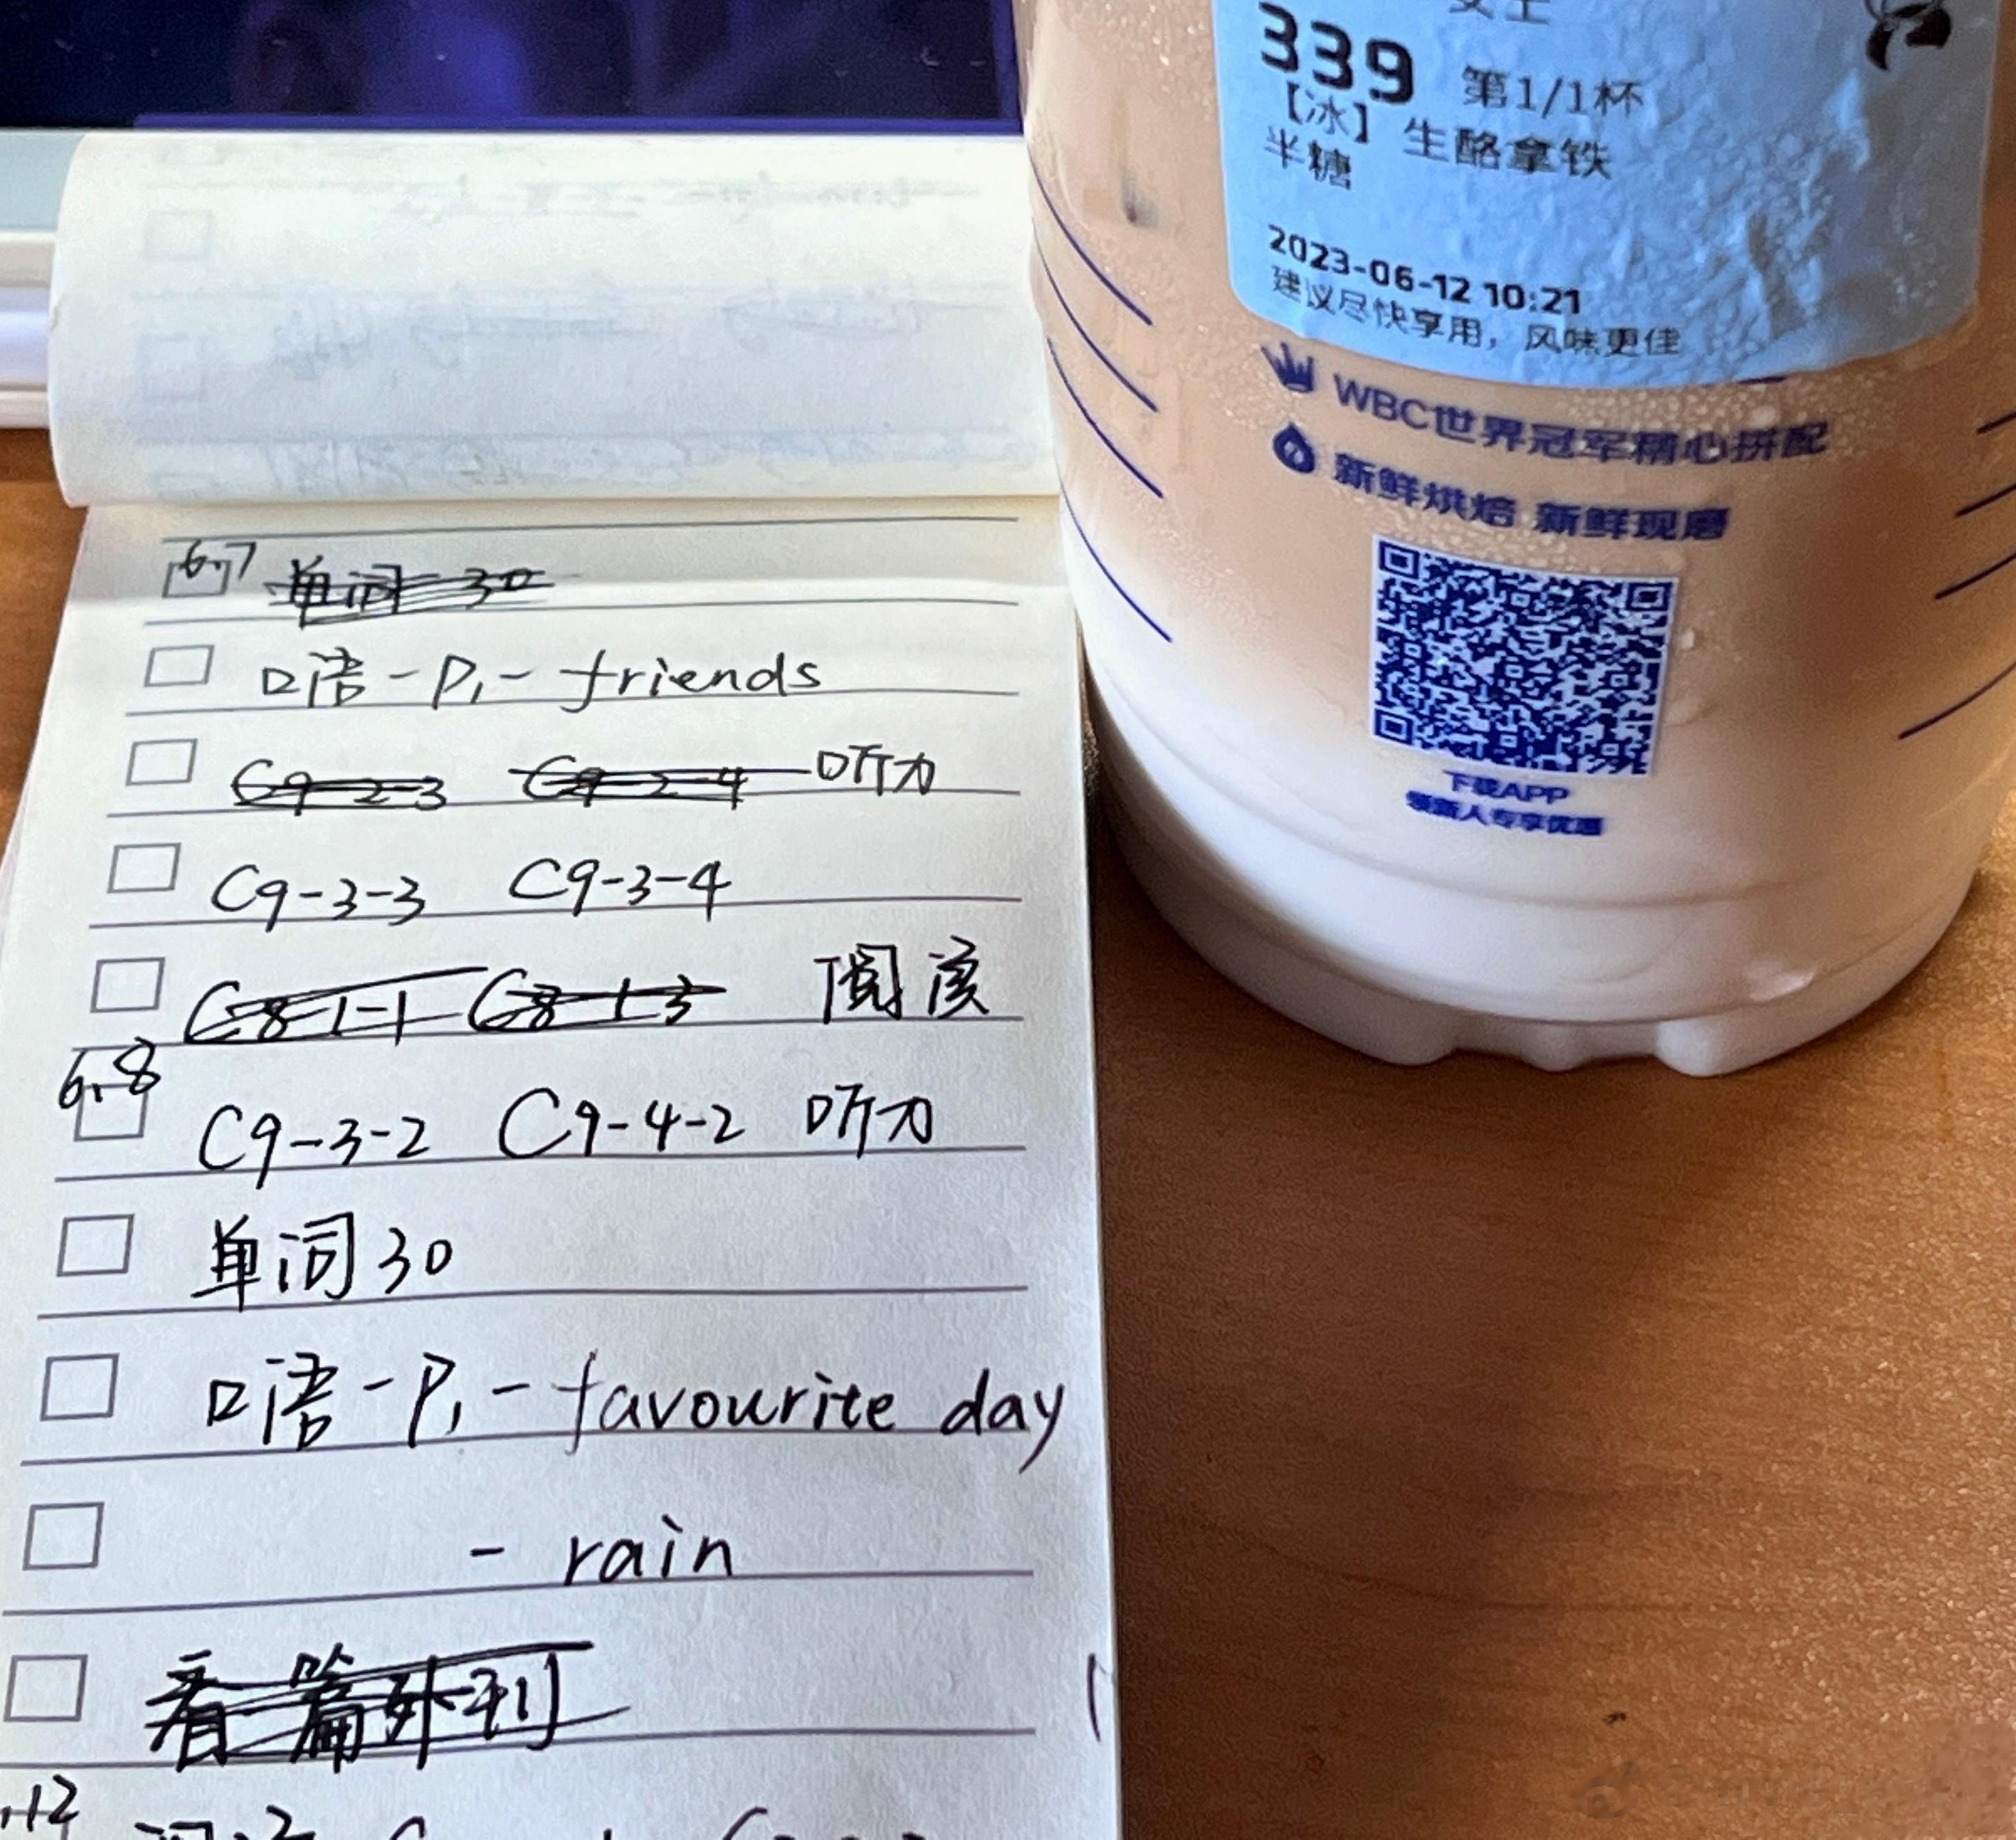 6.7 单词 30
口语-P1-friends
C9-2-3 C9-2-4 听力
C9-3-3 C9-3-4
C8-1-1 C8-1-3 阅读
6.8 C9-3-2 C9-4-2 听力
单词30
口语-P1-favourite day
-rain
看篇外刊
.12
女士
339 第1/1杯
【冰】生酪拿铁
半糖
2023-06-12 10:21
建议尽快享用，风味更佳
WBC世界冠军精心拼配
新鲜烘焙 新鲜现磨
下载APP
领新人专享优惠